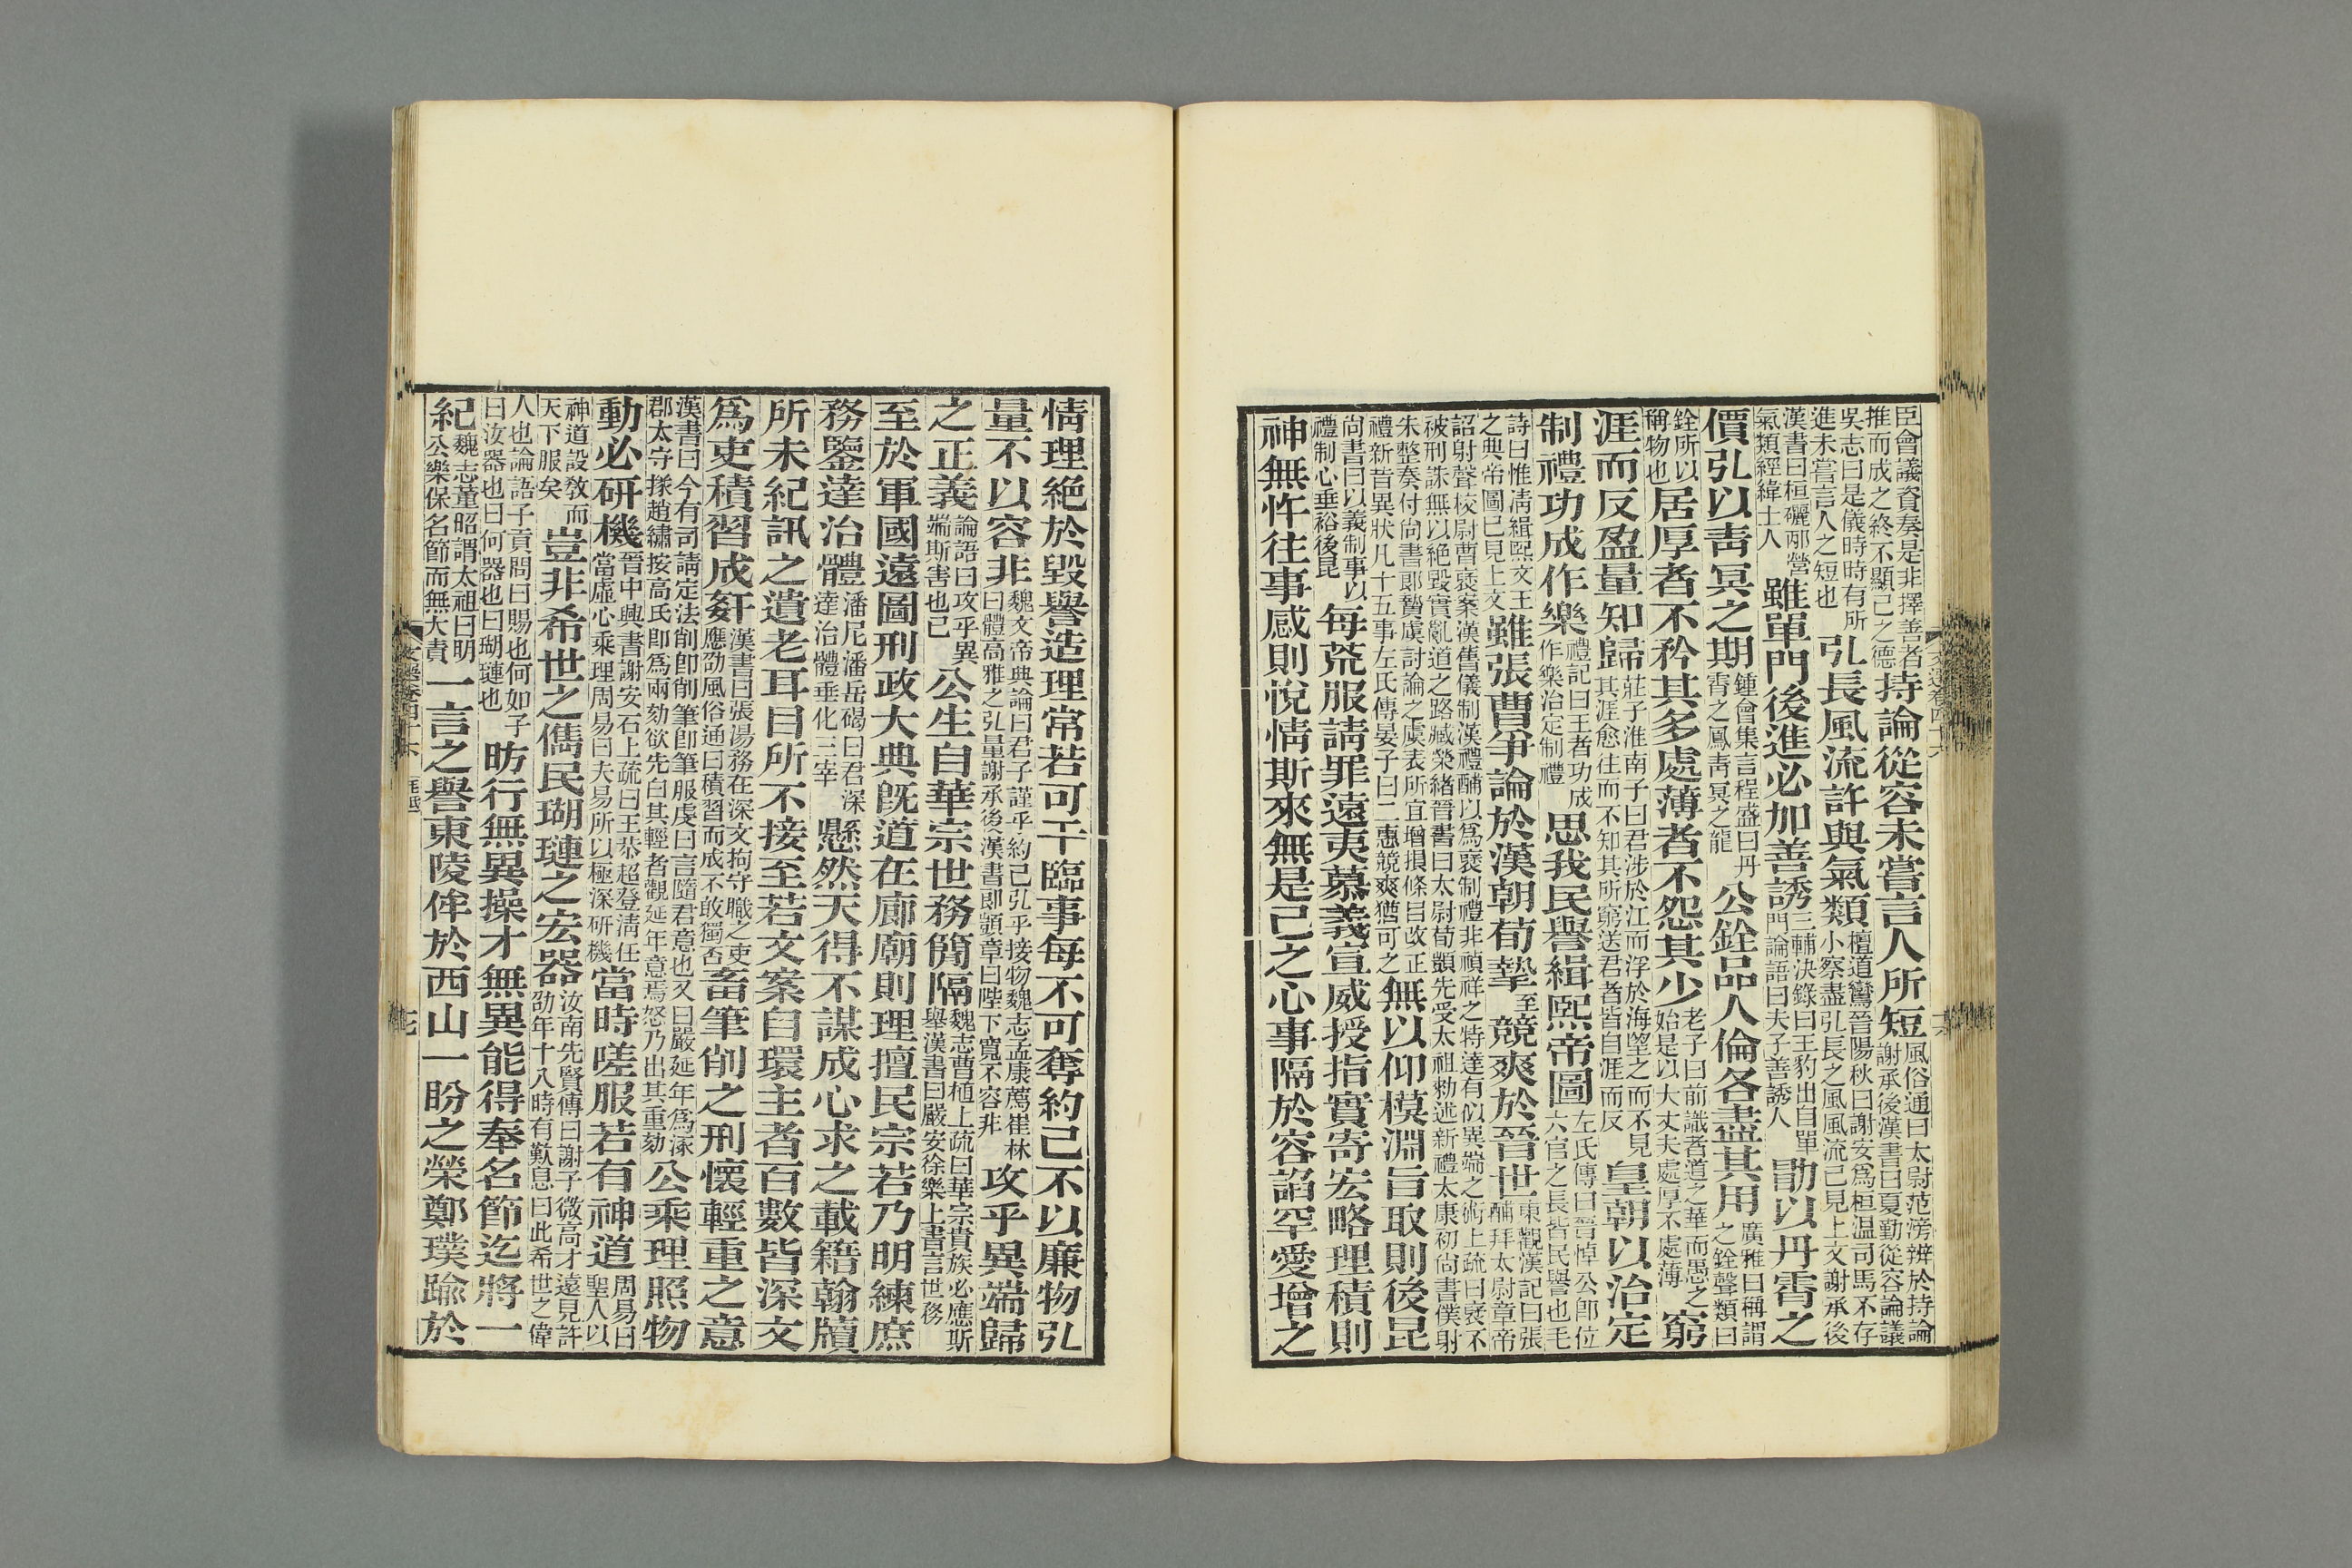 臣會議資奏是非擇善者推而成之終不顯己之德持論從容未嘗言人所短風俗通曰太尉范滂辨於持論謝承後漢書曰夏勤從容論議
吳志曰是儀時時有所進未嘗言人之短也弘長風流許與氣類檀道鸞晉陽秋曰謝安爲桓温司馬不存小察盡弘長之風風流已見上文謝承後
漢書曰桓礹邴營氣類經緯士人雖單門後進必加善誘三輔決錄曰王豹出自單門論語曰夫子善誘人勖以丹霄之
價弘以靑冥之期鍾會集言程盛曰丹霄之鳳靑冥之龍公銓品人倫各盡其用廣雅曰稱謂之銓聲類曰
銓所以稱物也居厚者不矜其多處薄者不怨其少老子曰前識者道之華而愚之始是以大丈夫處厚不處薄窮
涯而反盈量知歸莊子淮南子曰君涉於江而浮於海望之而不見其涯愈往而不知其所窮送君者皆自涯而反皇朝以治定
制禮功成作樂禮記曰王者功成作樂治定制禮思我民譽緝熙帝圖左氏傳曰晉悼公卽位六官之長皆民譽也毛
詩曰惟淸緝熙文王之典帝圖已見上文雖張曹爭論於漢朝荀摯至競爽於晉世東觀漢記曰張酺拜太尉章帝
詔射聲校尉曹褒案漢舊儀制漢禮酺以爲褒制禮非禎祥之特達有似異端之術上疏曰褒不被刑誅無以絕毀實亂道之路臧榮緒晉書曰太尉荀顗先受太祖勑述新禮太康初尚書僕射
朱整奏付尚書郎摯虞討論之虞表所宜增損條目改正禮新昔異狀凡十五事左氏傳晏子曰二惠競爽猶可之無以仰模淵旨取則後昆
尚書曰以義制事以禮制心垂裕後昆每荒服請罪遠夷慕義宣威授指實寄宏略理積則
神無忤往事感則悅情斯來無是己之心事隔於容諂罕愛憎之
情理絶於毀譽造理常若可干臨事每不可奪約己不以廉物弘
量不以容非魏文帝典論曰君子謹乎約己弘乎接物魏志孟康薦崔林曰體高雅之弘量謝承後漢書郎顗章曰陛下寬不容非攻乎異端歸
之正義論語曰攻乎異端斯害也已公生自華宗世務簡隔魏志曹植上疏曰華宗貴族必應斯舉漢書曰嚴安徐樂上書言世務
至於軍國遠圖刑政大典旣道在廊廟則理擅民宗若乃明練庶
務鑒達治體潘尼潘岳碣曰君深達治體垂化三宰懸然天得不謀成心求之載籍翰牘
所未紀訊之遺老耳目所不接至若文案自環主者百數皆深文
爲吏積習成奸漢書曰張湯務在深文拘守職之吏應劭風俗通曰積習而成不敢獨否畜筆削之刑懷輕重之意
漢書曰今有司請定法削卽削筆卽筆服虔曰言隨君意也又曰嚴延年爲涿郡太守掾趙繡按高氏卽爲兩劾欲先白其輕者觀延年意焉怒乃出其重劾公乘理照物
動必研機晉中興書謝安石上疏曰王恭超登淸任當虛心乘理周易曰夫易所以極深研機當時嗟服若有神道周易曰聖人以
神道設敎而天下服矣豈非希世之儁民瑚璉之宏器汝南先賢傳曰謝子微高才遠見許劭年十八時有歎息曰此希世之偉
人也論語子貢問曰賜也何如子曰汝器也曰何器也曰瑚璉也昉行無異操才無異能得奉名節迄將一
紀魏志董昭謂太祖曰明公樂保名節而無大責一言之譽東陵侔於西山一盼之榮鄭璞踰於